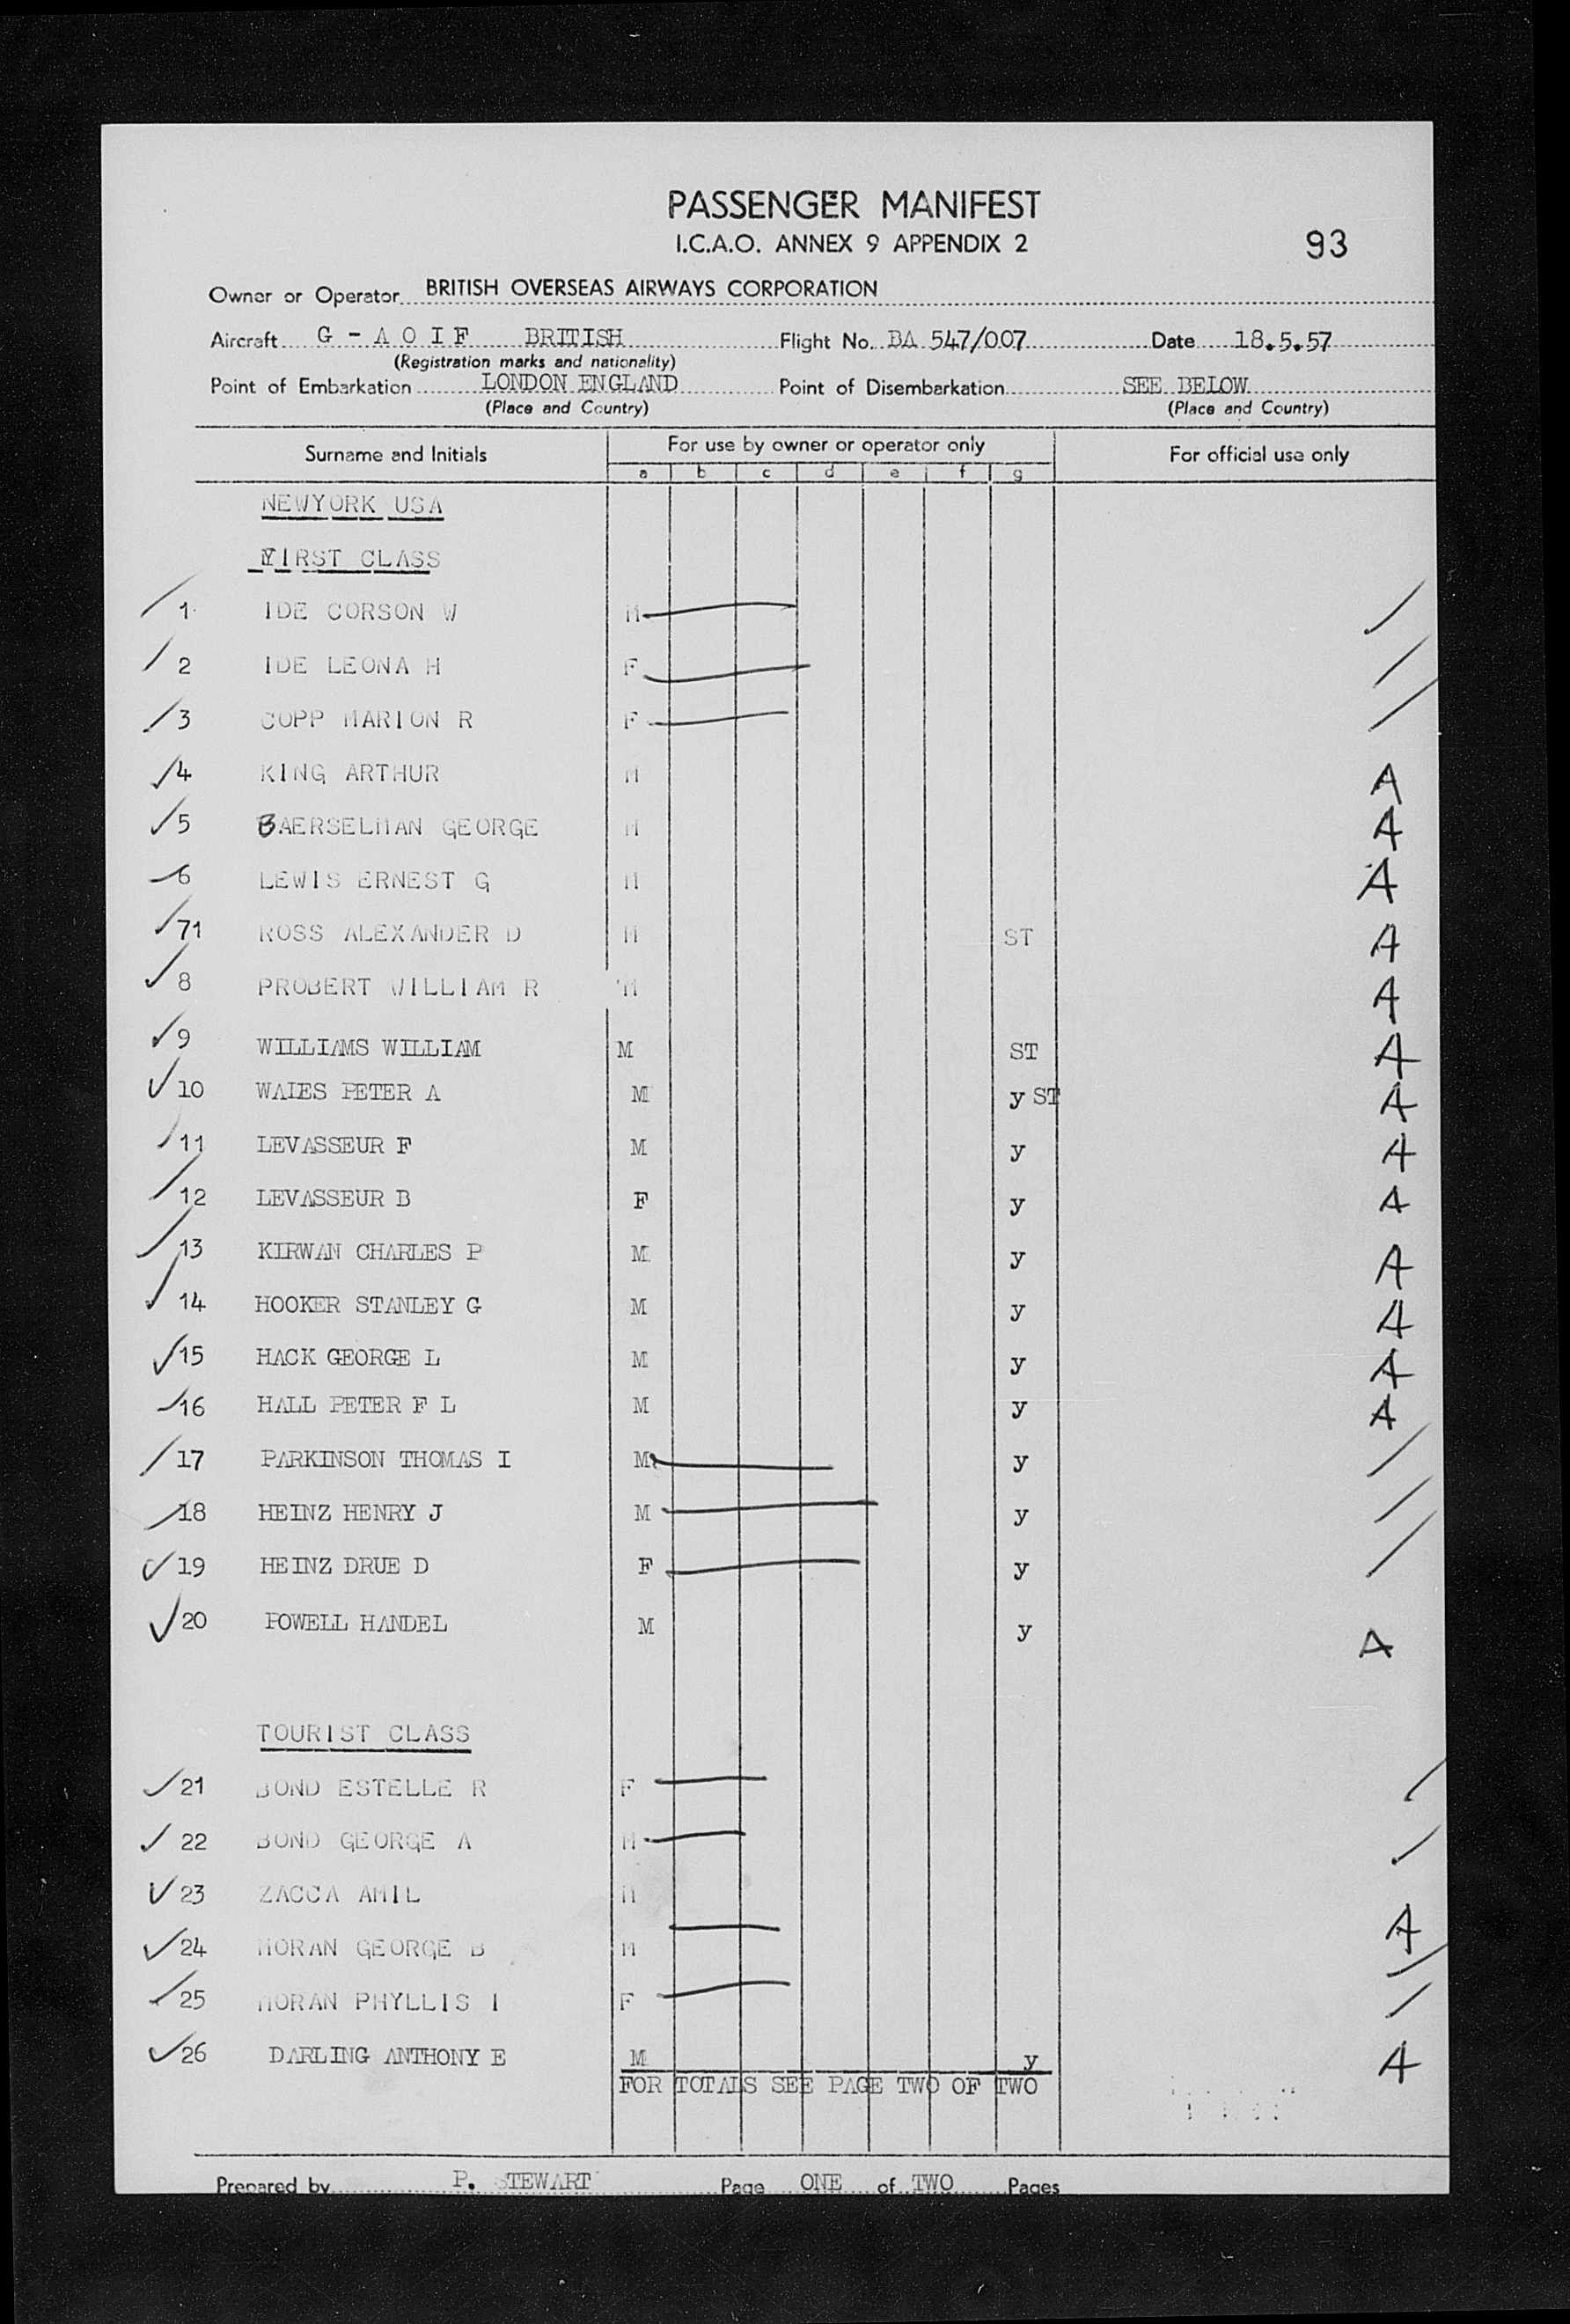 PASSENGER MANIFEST
I.C.A.O. ANNEX 9 APPENDIX 2
93
Owner or Operator BRITISH OVERSEAS AIRWAYS CORPORATION
Aircraft G - A O I F BRITISH Flight No. BA 547/007 Date 18.5.57
(Registration marks and nationality)
Point of Embarkation LONDON ENGLAND Point of Disembarkation SEE BELOW
(Place and Country) (Place and Country)
Surname and Initials For use by owner or operator only For official use only
a b c d e f g
NEWYORK USA
FIRST CLASS
1 IDE CORSON W M
2 IDE LEONA H F
3 COPP MARION R F
4 KING ARTHUR M A
5 BAERSELMAN GEORGE M A
6 LEWIS ERNEST G M A
71 ROSS ALEXANDER D M ST A
8 PROBERT WILLIAM R M A
9 WILLIAMS WILLIAM M ST A
10 WAIES PETER A M y ST A
11 LEVASSEUR F M y A
12 LEVASSEUR B F y A
13 KIRWAN CHARLES P M y A
14 HOOKER STANLEY G M y A
15 HACK GEORGE L M y A
16 HALL PETER F L M y A
17 PARKINSON THOMAS I M y
18 HEINZ HENRY J M y
19 HEINZ DRUE D F y
20 POWELL HANDEL M y A
TOURIST CLASS
21 BOND ESTELLE R F
22 BOND GEORGE A M
23 ZACCA AMIL M A
24 MORAN GEORGE B M
25 MORAN PHYLLIS I F
26 DARLING ANTHONY E M y A
FOR TOTALS SEE PAGE TWO OF TWO
Prepared by P. STEWART Page ONE of TWO Pages